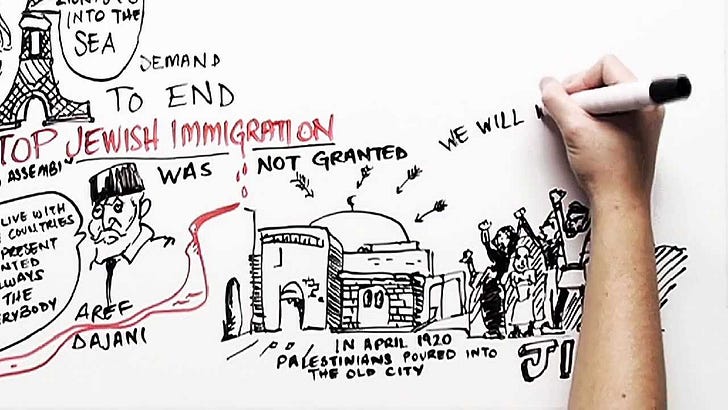 INTO THE
SEA
DEMAND
TO END
TOP JEWISH IMMIGRATION
ASSEMBL
WAS NOT GRANTED
LIVE WITH
COUNTRIES
PRESENT
ALWAYS
THE
AREF
DAJANI
WE WILL
IN APRIL 1920
PALESTINIANS POURED INTO
THE OLD CITY